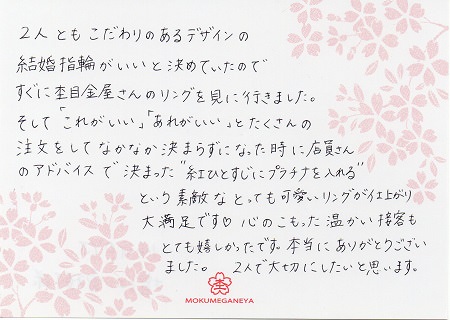 2人とも こだわりのあるデザインの
結婚指輪がいいと決めていたので
すぐに杢目金屋さんのリングを見に行きました。
そして「これがいい」「あれがいい」とたくさんの
注文をしてなかなか決まらずになった時に店員さん
のアドバイスで決まった"紅ひとすじにプラチナを入れる"
という素敵なとっても可愛いリングが仕上がり
大満足です♡ 心のこもった温かい接客も
とても嬉しかったです。本当にありがとうござい
ました。 2人で大切にしたいと思います。
MOKUMEGANEYA